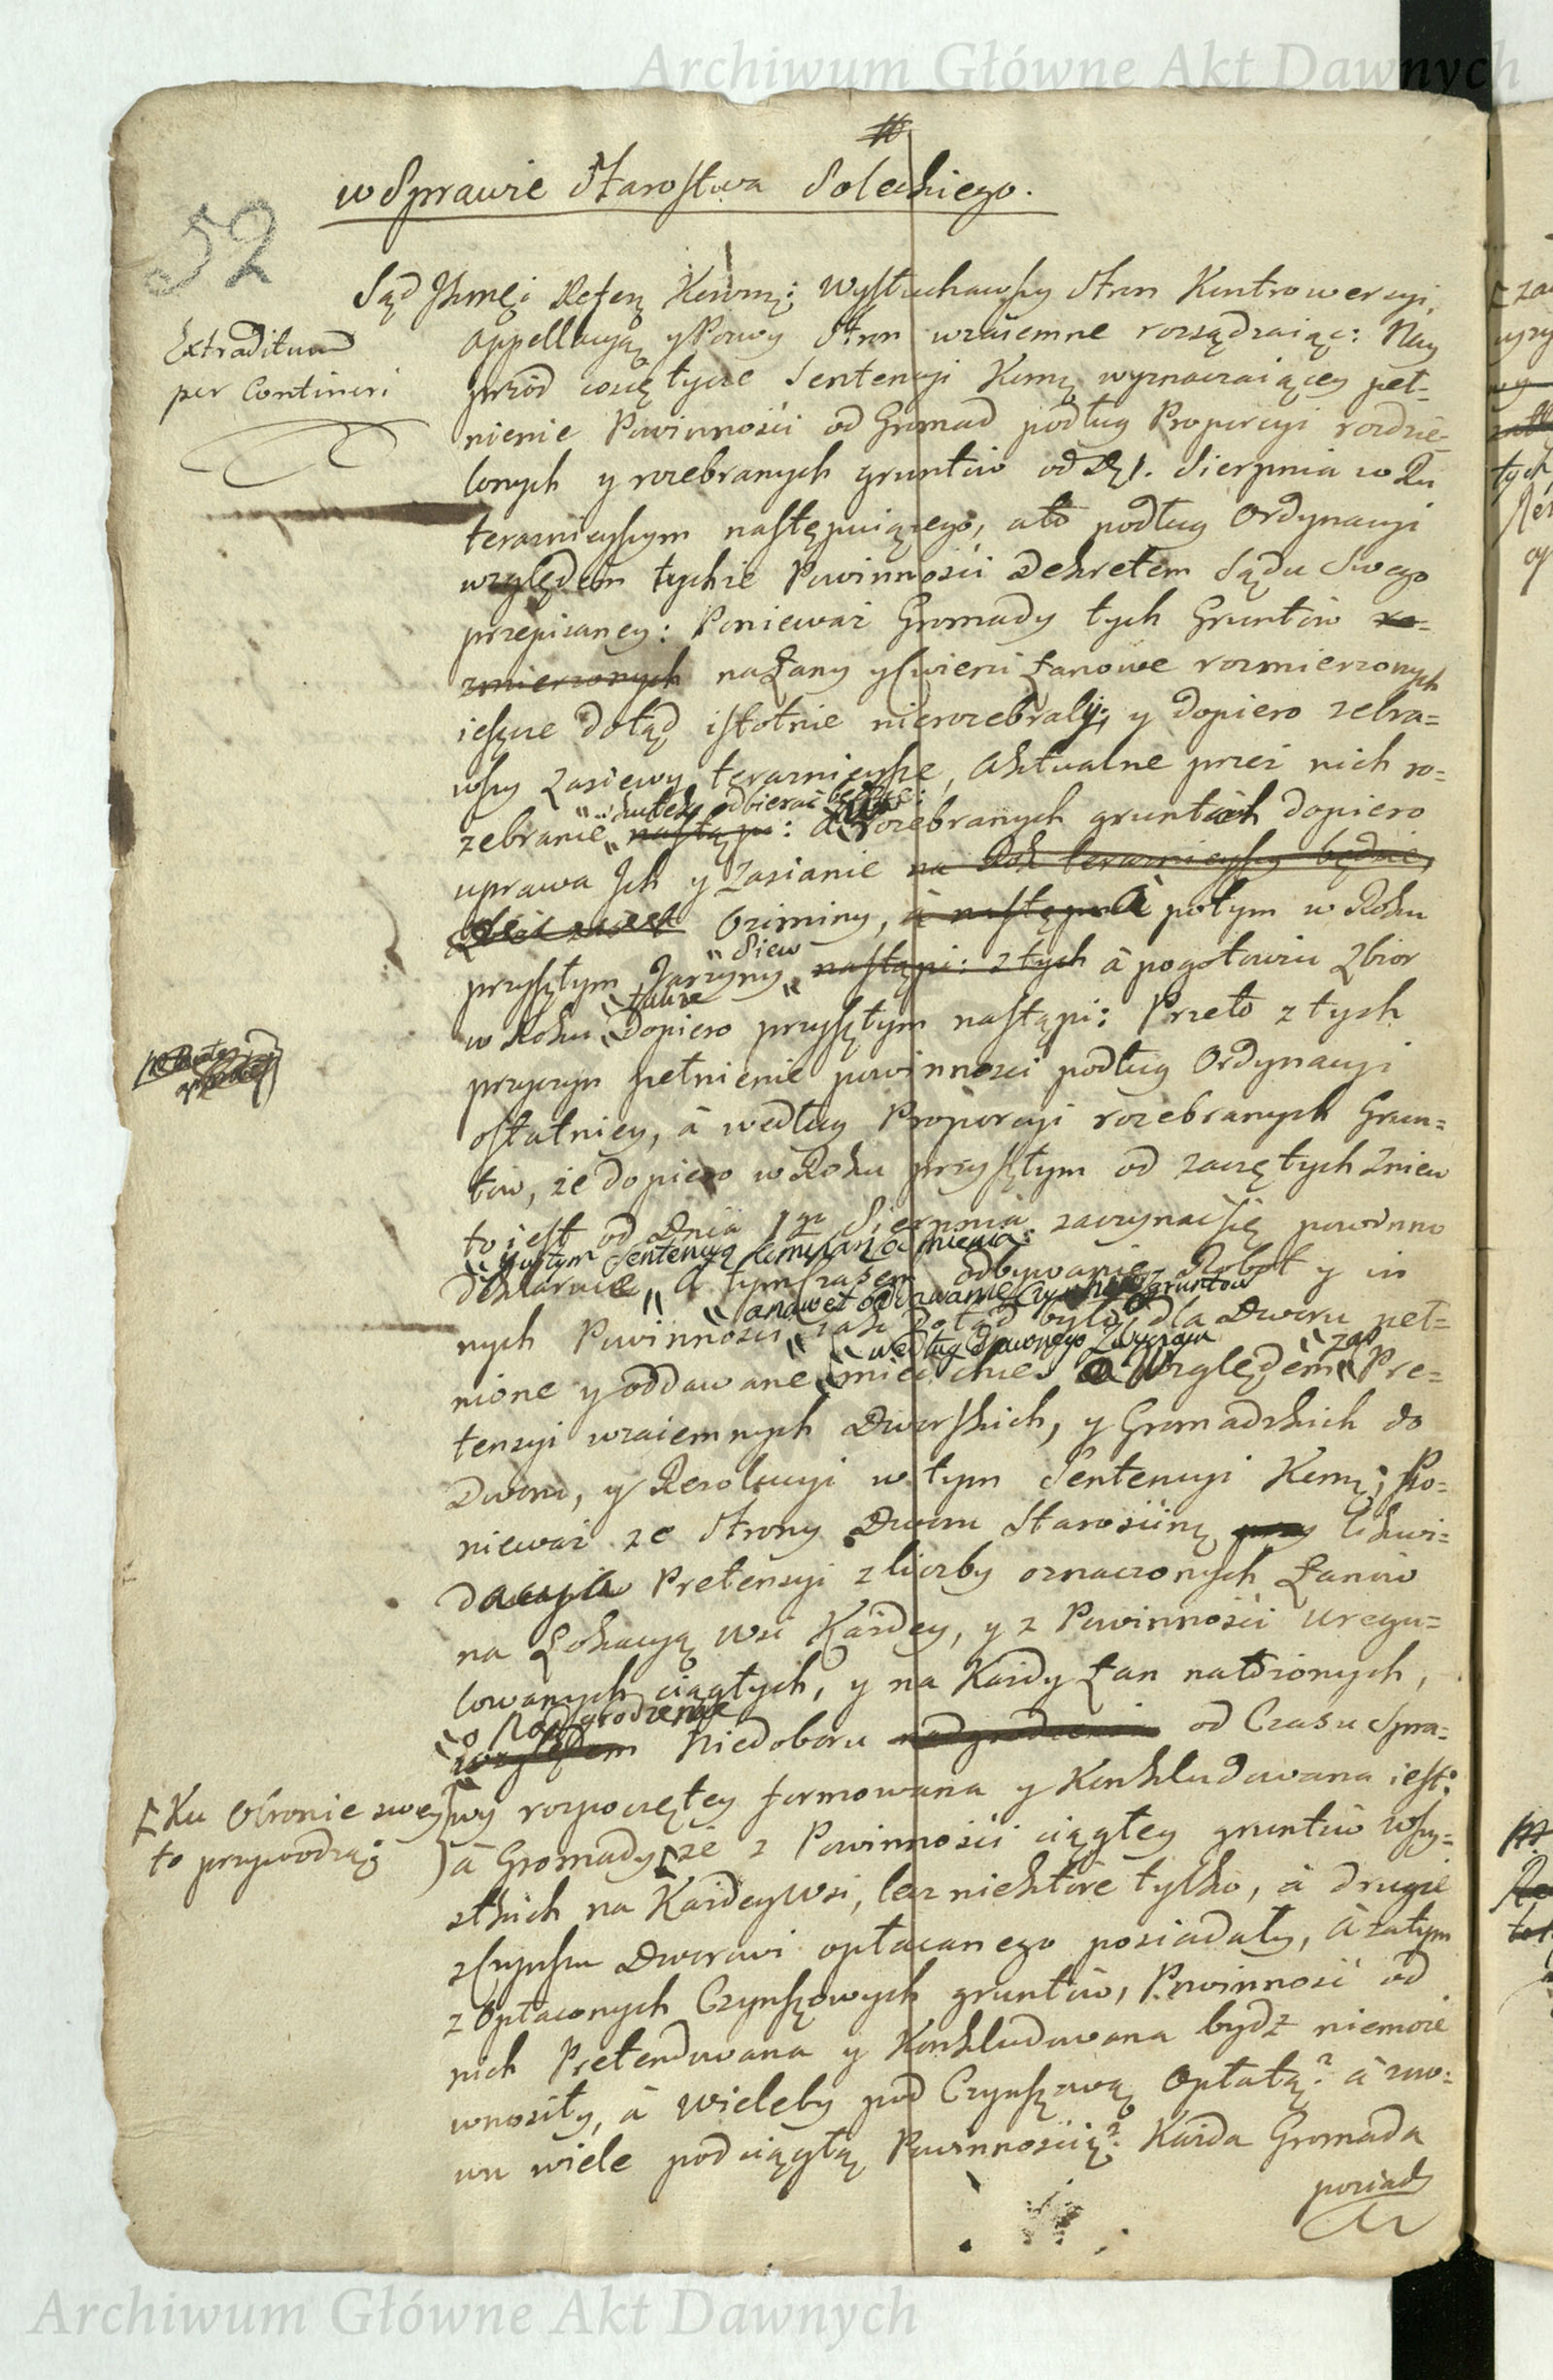 Archiwum Główne Akt Dawnych
w Sprawie Starostwa Soleckiego.
52
Sąd Jkmći Refer. Koronny: Wysłuchawszy Stron Kontrowersyi,
Extraditum
per Contineri
appellacyą y Powy Stron wzaiemne rozsądzaiąc: Nay
przód cosię tycze Sentencyi Kom: wyznaczaiącey peł-
nienie Powinności od Gromad podług Proporcyi rozdzie-
lonych y rozebranych gruntów od D. 1. Sierpnia w Ru
teraznieyszym następuiącego, ato podług Ordynacyi
względem tychże Powinności Dekretem Sądu Swego
przepisaney: Ponieważ Gromady tych Gruntów ro-
zmierzonych na Łany y Cwierci Łanowe rozmierzonych
ieszcze dotąd istotnie nierozebrały; y dopiero zebra=
wszy Zasiewy teraznieysze, Aktualne przez nich ro=
odbierać będzie:
zebranie nastąpi: a rozebranych gruntach dopiero
uprawa Jch y Zasianie na Rok teraznieyszy będzie,
Oziminy, à następnie à potym w Roku
Siew
przyszłym Jarzyny nastąpi: z tych à pogotowiu Zbior
także
w Roku dopiero przyszłym nastąpi: Przeto z tych
przyczyn pełnienie powinności podług Ordynacyi
ostatniey, à według Proporcyi rozebranych Grun=
tów, że dopiero w Roku przyszłym od zaczętych Zniew
to iest od Dnia 1go Sierpnia zaczynać się powinno
y wtym Sentencyą Komissarską odmienia:
deklaruie, A tym czasem odbywanie Robot y in
a nawet oddawanie Czynszu z gruntów
nych Powinności iak dotąd było, dla Dworu peł=
według dawnego Zwyczaiu
zaś
nione y oddawane mieć chce. a Względem Pre=
tensyi wzaiemnych Dworskich, y Gromadzkich do
Dworu, y Rezolucyi w tym Sentencyi Kom: Po=
nieważ ze Strony Dworu Starościń: przy likwi=
dacyia Pretensyi z liczby oznaczonych Łanów
na Lokacyą Wsi Każdey, y z Powinności uregu=
lowanych ciągłych, y na Każdy Łan nałożonych,
o Nadgrodzenie
względem Niedoboru nadgrodzenia od Czasu Spra=
[Ku Obronie swey
to przywodząc
wy rozpoczętey formowana y Konkludowana iest:
à Gromady [że z Powinności ciągłey gruntów Wszy=
stkich na Każdey Wsi, lecz niektóre tylko, à drugie
z Czynszu Dworowi opłacanego posiadały, à zatym
z Opłaconych Czynszowych gruntów, Powinność od
nich Pretendowana y Konkludowana bydź niemoże
wnosiły, à Wieleby pod Czynszową Opłatą? à zno=
wu wiele pod ciągłą Powinnością? Każda Gromada
posiad
Archiwum Główne Akt Dawnych